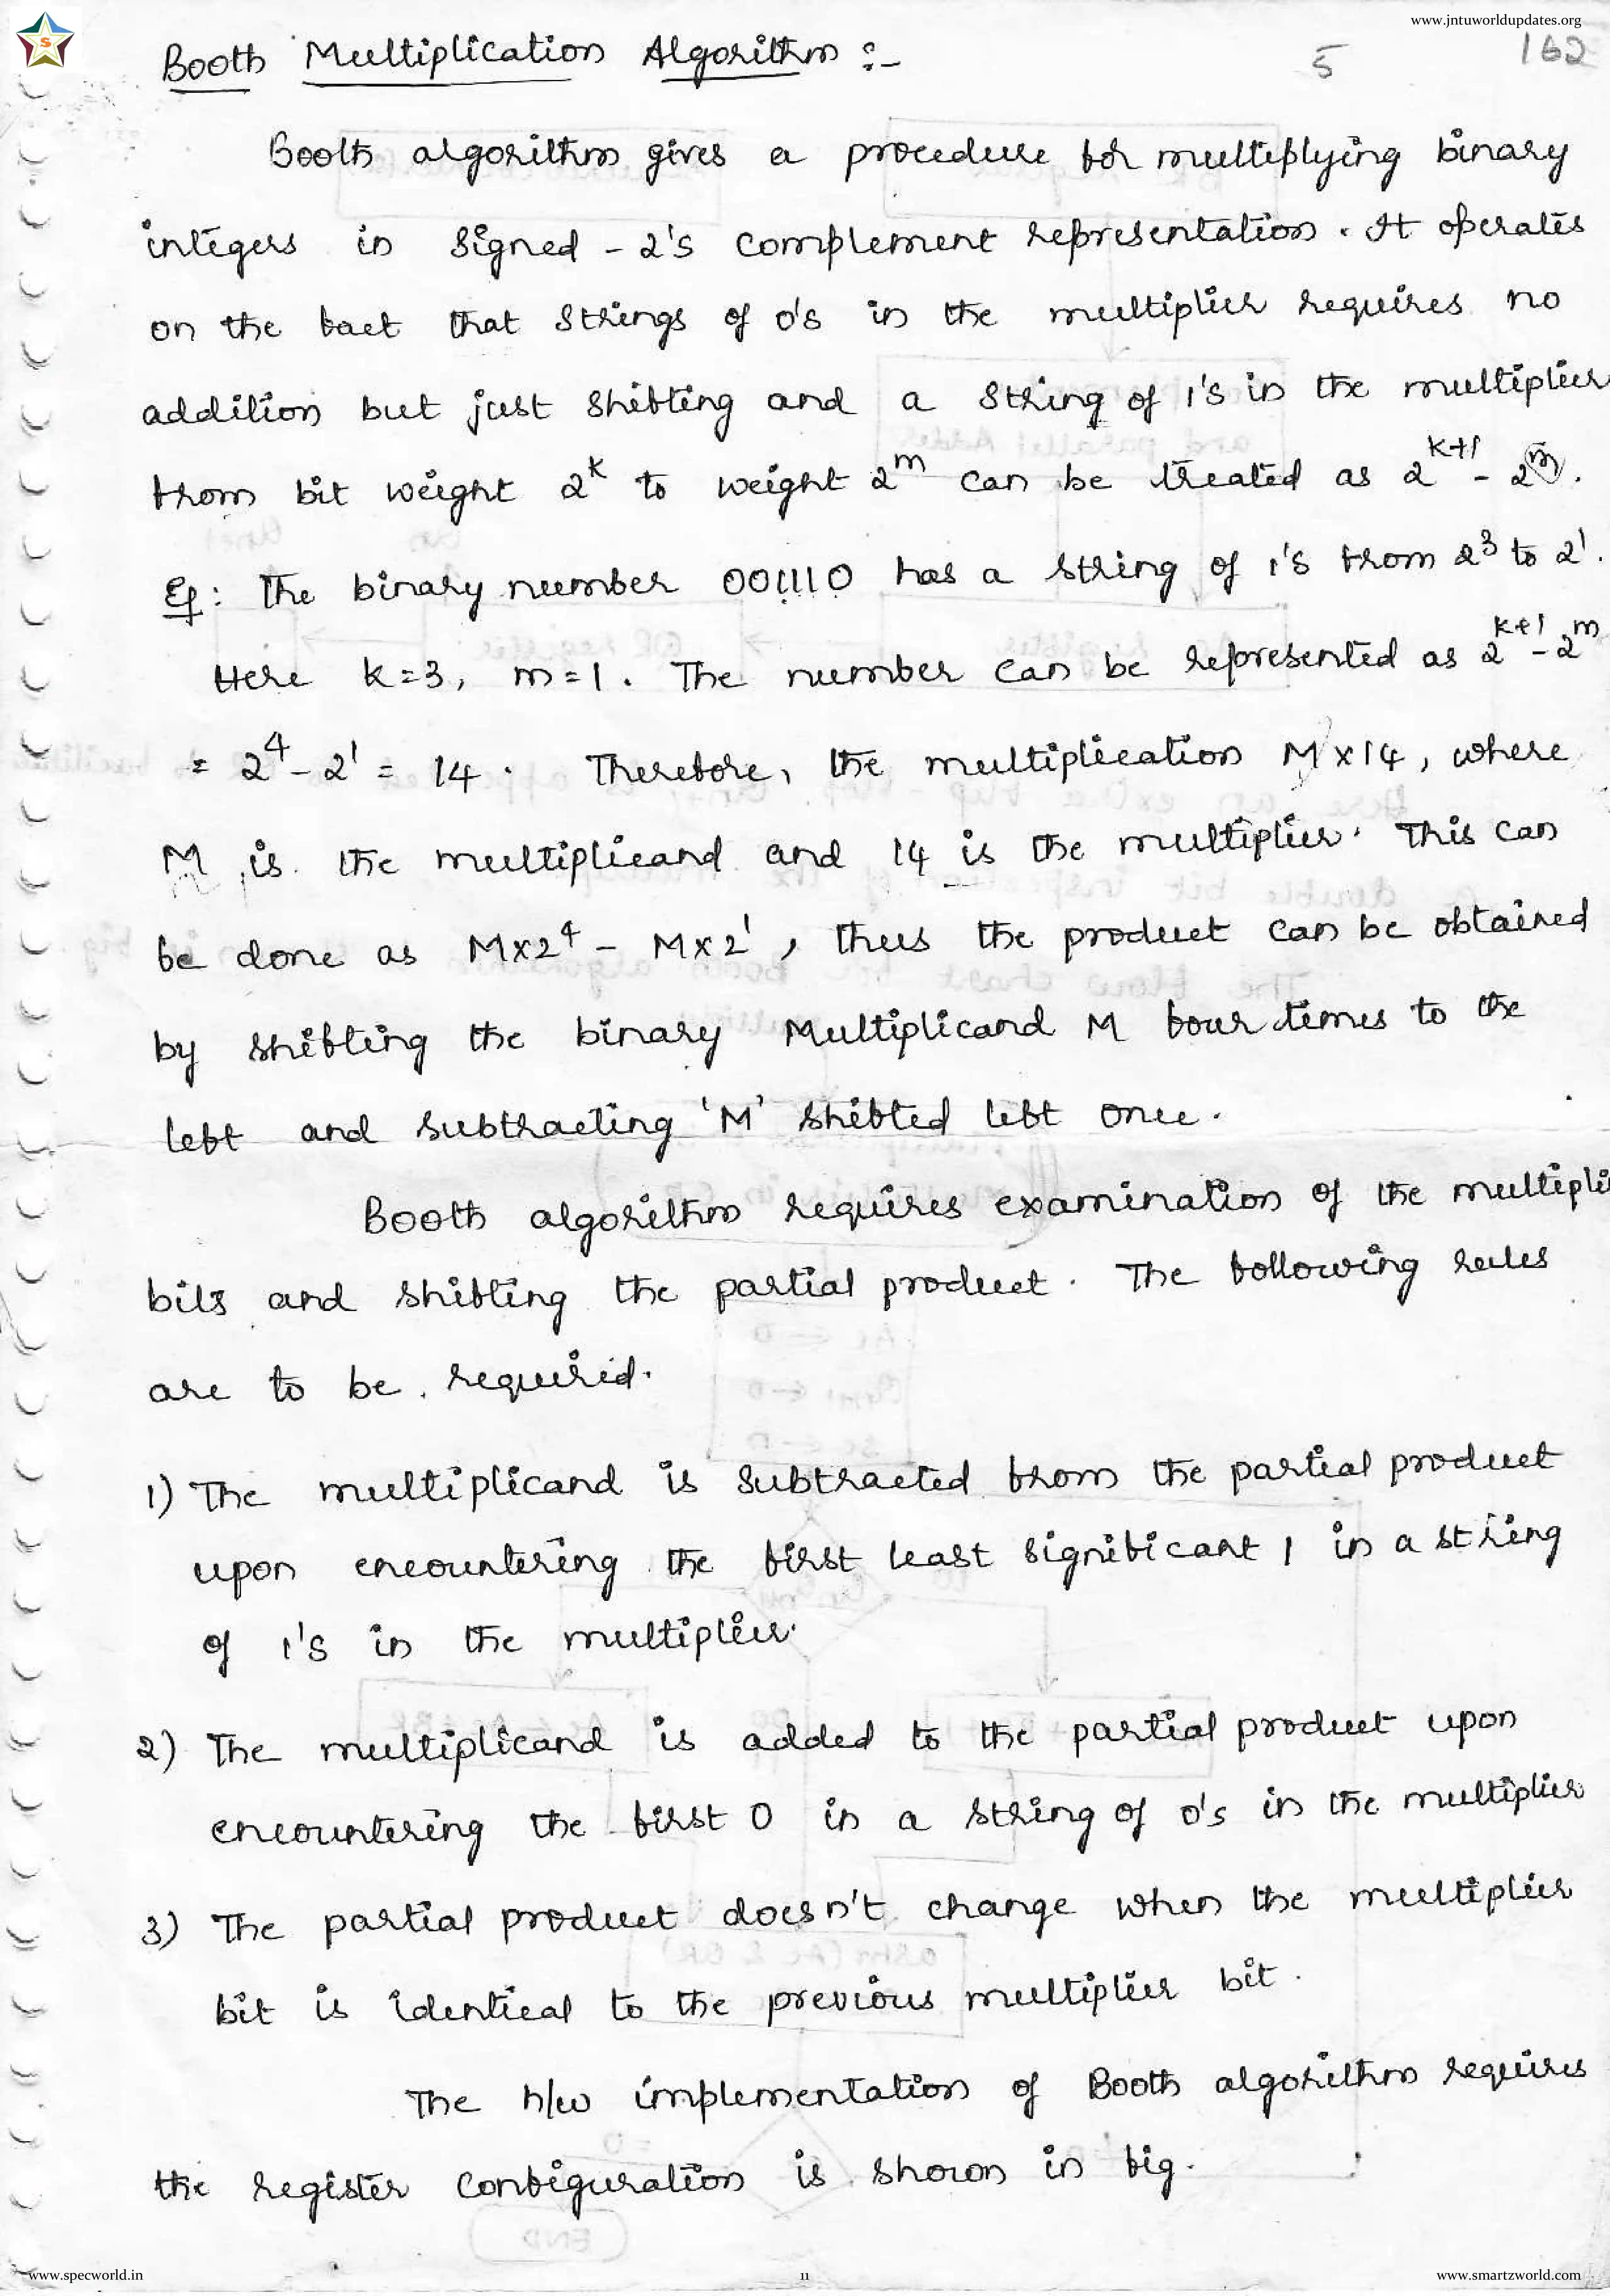 www.jntuworldupdates.org
S
5 162
Booth Multiplication Algorithm :-
Booth algorithm gives a procedure for multiplying binary
integers in signed - 2's complement representation. It operates
on the fact that strings of 0's in the multiplier requires no
addition but just shifting and a string of 1's in the multiplier
from bit weight 2^k to weight 2^m can be treated as 2^{k+1} - 2^m.
Eg: The binary number 001110 has a string of 1's from 2^3 to 2^1.
Here k=3, m=1. The number can be represented as 2^{k+1} - 2^m
= 2^4 - 2^1 = 14. Therefore, the multiplication M x 14, where
M is the multiplicand and 14 is the multiplier. This can
be done as M x 2^4 - M x 2^1, thus the product can be obtained
by shifting the binary Multiplicand M four times to the
left and subtracting 'M' shifted left once.
Booth algorithm requires examination of the multipli
bits and shifting the partial product. The following rules
are to be required.
1) The multiplicand is subtracted from the partial product
upon encountering the first least significant 1 in a string
of 1's in the multiplier.
2) The multiplicand is added to the partial product upon
encountering the first 0 in a string of 0's in the multiplier
3) The partial product doesn't change when the multiplier
bit is identical to the previous multiplier bit.
The h/w implementation of Booth algorithm requires
the register configuration is shown in fig.
www.specworld.in 11 www.smartzworld.com